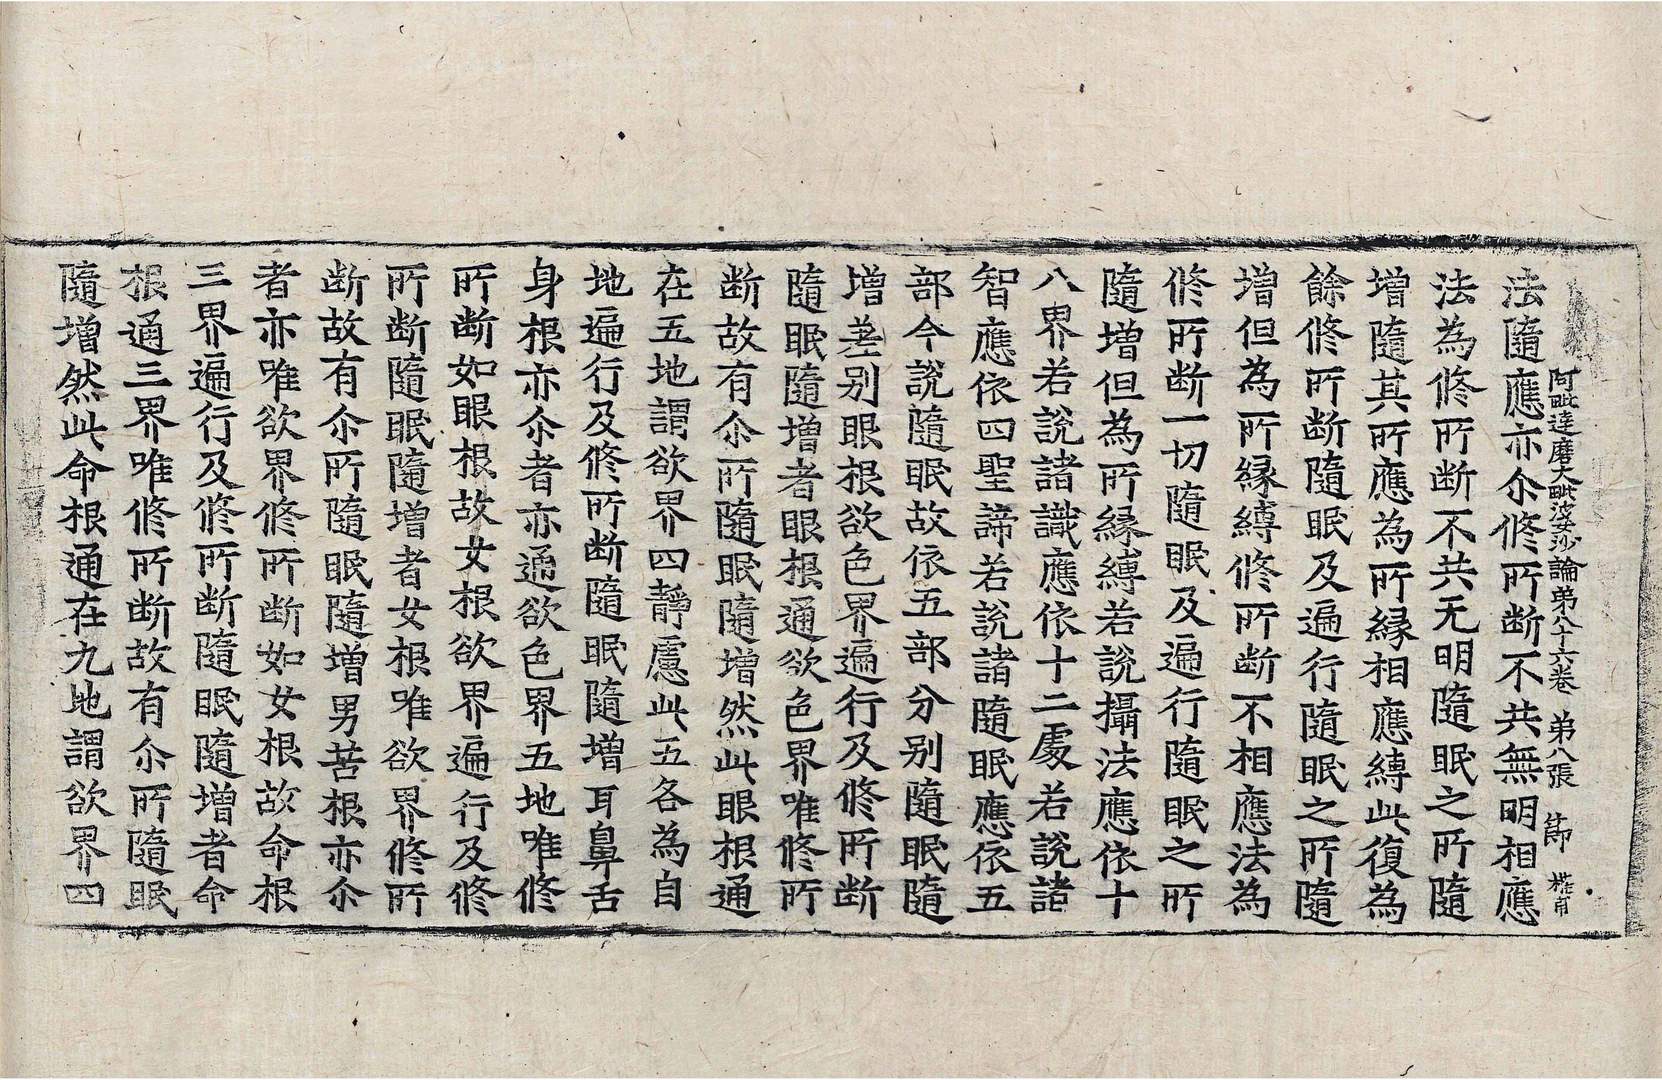 阿毗達磨大毗婆沙論第八十六卷 第八張 節
法隨應亦尒修所断不共無明相應
法為修所断不共无明隨眠之所隨
增隨其所應為所縁相應縛此復為
餘修所断隨眠及遍行隨眠之所隨
增但為所縁縛修所断不相應法為
修所断一切隨眠及遍行隨眠之所
隨增但為所縁縛若說攝法應依十
八界若說諸識應依十二處若說諸
智應依四聖諦若說諸隨眠應依五
部今說隨眠故依五部分别隨眠隨
增差别眼根欲色界遍行及修所断
隨眠隨增者眼根通欲色界唯修所
断故有尒所隨眠隨增然此眼根通
在五地謂欲界四靜慮此五各為自
地遍行及修所断隨眠隨增耳鼻舌
身根亦尒者亦通欲色界五地唯修
所断如眼根故女根欲界遍行及修
所断隨眠隨增者女根唯欲界修所
断故有尒所隨眠隨增男苦根亦尒
者亦唯欲界修所断如女根故命根
三界遍行及修所断隨眠隨增者命
根通三界唯修所断故有尒所隨眠
隨增然此命根通在九地謂欲界四